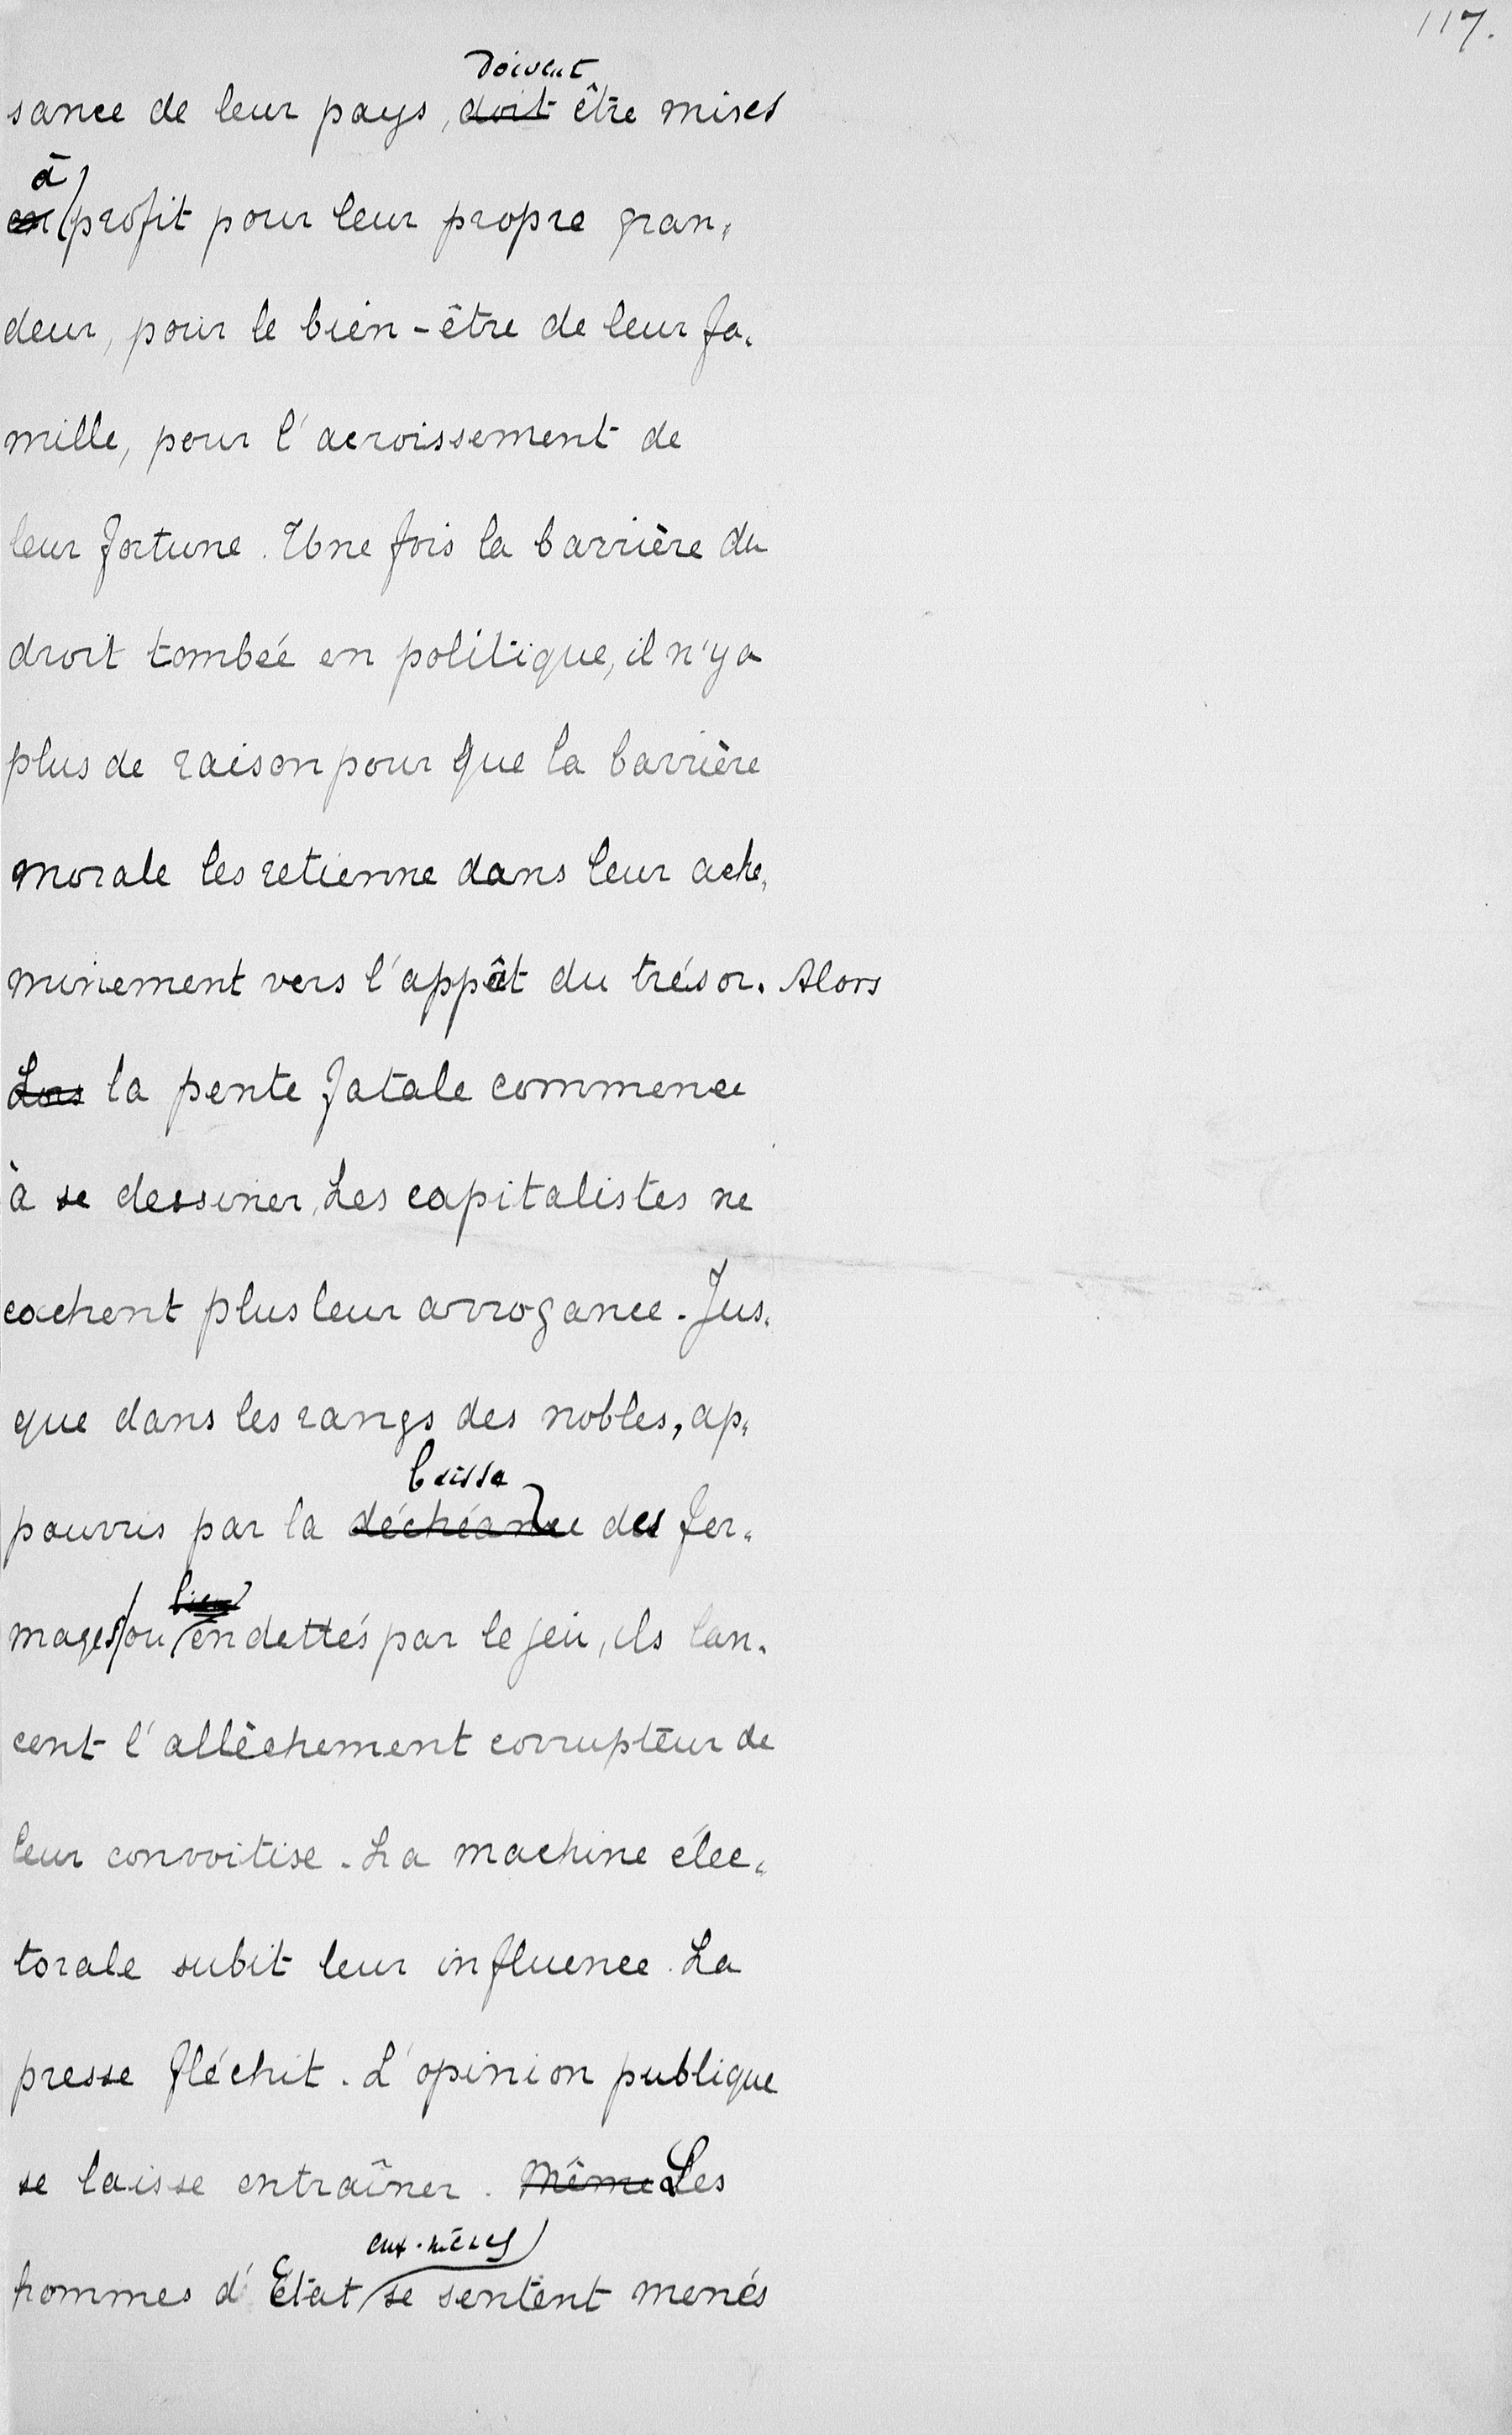 117.
doivent
sance de leur pays, doit être mises
à
en profit pour leur propre gran,
deur, pour le bien-être de leur fa,
mille, pour l'acroissement de
leur fortune. Une fois la barrière du
droit tombée en politique, il n'y a
plus de raison pour que la barrière
morale les retienne dans leur ache,
minement vers l'appât du trésor. Alors
Lors la pente fatale commence
à se dessiner, Les capitalistes ne
cachent plus leur arrogance. Jus,
que dans les rangs des nobles, ap,
baisse
pauvris par la déchéance des fer,
bien
mages ou endettés par le jeu, ils lan,
cent l'allèchement corrupteur de
leur convoitise. La machine élec,
torale subit leur influence. La
presse fléchit. L'opinion publique
se laisse entraîner. Même Les
eux-mêmes
hommes d'État se sentent menés